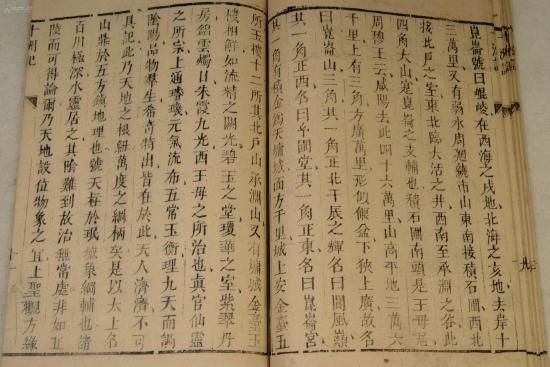 崑崙號曰崐崚在西海之戌地北海之亥地去岸十
三萬里又有弱水周廻繞帀山東南接積石圃西北
接北戶之室東北臨大活之井西南至承淵之谷此
四角大山寔崑崙之支輔也積石圃南頭是王母居
周穆王云咸陽去此四十六萬里山高平地三萬六
千里上有三角方廣萬里形似偃盆下狹上廣故名
曰崑崙山三角其一角正北干辰之輝名曰閬風巔
其一角正西名曰玄圃堂其一角正東名曰崑崙宮
其一角有積金為天墉城面方千里城上安金臺五
所玉樓十二所其北戶山承淵山又有墉城金臺玉
樓相鮮如流精之闕光碧玉之堂瓊華之室紫翠丹
房錦雲燭日朱霞九光西王母之所治也真官仙靈
之所宗上通璿璣元氣流布五常玉衡理九天而調
陰陽品物羣生希奇特出皆在於此天人濟濟不可
具記此乃天地之根紐萬度之綱柄矣是以太上名
山鼎於五方鎮地理也號天柱於珉城象綱輔也諸
百川極深水靈居之其陰難到故治無常處非如丘
陵而可得論爾乃天地設位物象之宜上聖觀方緣
十洲記